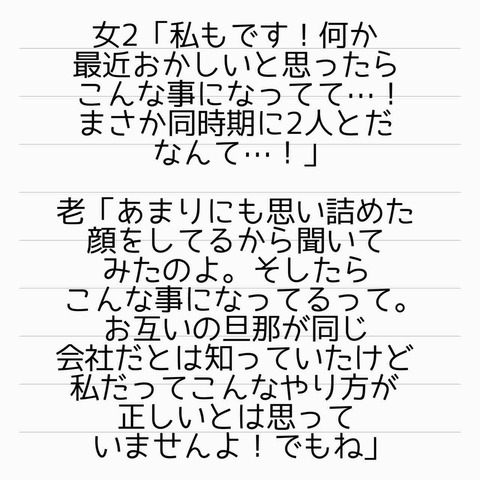 女2「私もです！何か
最近おかしいと思ったら
こんな事になってて…！
まさか同時期に2人とだ
なんて…！」
老「あまりにも思い詰めた
顔をしてるから聞いて
みたのよ。そしたら
こんな事になってるって。
お互いの旦那が同じ
会社だとは知っていたけど
私だってこんなやり方が
正しいとは思って
いませんよ！でもね」